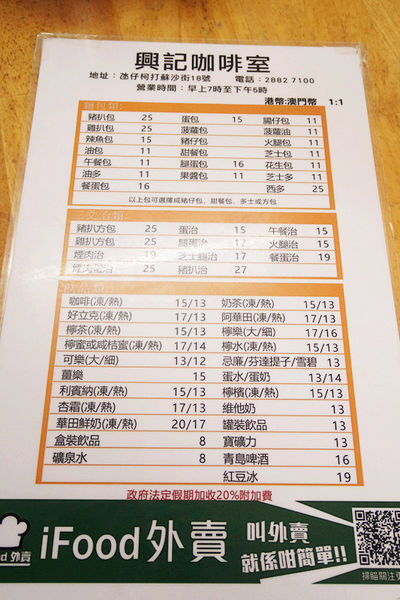 興記咖啡室
地址：氹仔柯打蘇沙街18號　電話：2882 7100
營業時間：早上7時至下午5時
港幣:澳門幣 1:1
麵包類:
豬扒包 25 蛋包 15 腸仔包 11
雞扒包 25 菠蘿包 11 菠蘿油 11
辣魚包 15 豬仔包 11 火腿包 11
油包 11 甜餐包 11 芝士包 11
午餐包 11 腿蛋包 16 花生包 11
油多 11 果醬包 11 芝士多 11
餐蛋包 16 西多 25
以上包可選擇咸豬仔包、甜餐包、多士或方包
三文治類:
豬扒方包 25 蛋治 15 午餐治 15
雞扒方包 25 腿蛋治 17 火腿治 15
煙肉治 19 芝士腿治 17 餐蛋治 19
25 豬扒治 27
飲品類:
咖啡(凍/熱) 15/13 奶茶(凍/熱) 15/13
好立克(凍/熱) 17/13 阿華田(凍/熱) 17/13
檸茶(凍/熱) 15/13 檸樂(凍/熱) 17/16
檸蜜或咸桔蜜(凍/熱) 17/14 檸水(凍/熱) 15/13
可樂(大/細) 13/12 忌廉/芬達提子/雪碧 13
薑樂 15 蛋水/蛋奶 13/14
利賓納(凍/熱) 15/13 檸檬(凍/熱) 15/13
杏霜(凍/熱) 17/13 維他奶 13
華田鮮奶(凍/熱) 20/17 罐裝飲品 13
盒裝飲品 8 寶礦力 13
礦泉水 8 青島啤酒 16
紅豆冰 19
政府法定假期加收20%附加費
iFood外賣
叫外賣
就係咁簡單!!
od 外賣
掃瞄關注更